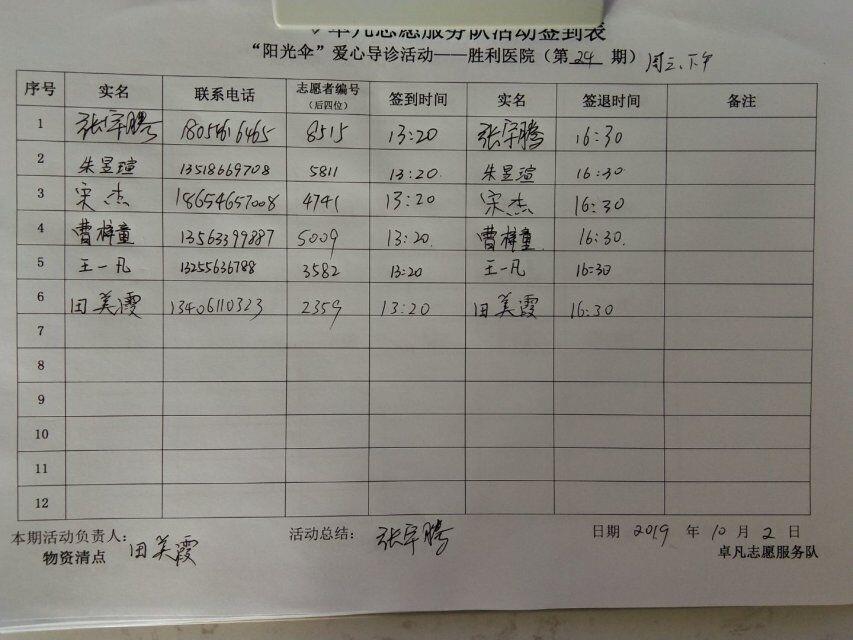 卓凡志愿服务队活动签到表
“阳光伞”爱心导诊活动——胜利医院（第24期）周三下午
序号 实名 联系电话 志愿者编号（后四位） 签到时间 实名 签退时间 备注
1 张宇腾 18054616465 8515 13:20 张宇腾 16:30
2 朱昱瑄 13518669708 5811 13:20 朱昱瑄 16:30
3 宋杰 18654657008 4741 13:20 宋杰 16:30
4 曹梓童 13563399887 5009 13:20 曹梓童 16:30
5 王一凡 13255636788 3582 13:20 王一凡 16:30
6 田美霞 13406110323 2359 13:20 田美霞 16:30
7
8
9
10
11
12
本期活动负责人： 田美霞 活动总结： 张宇腾 日期 2019 年 10 月 2 日
物资清点 卓凡志愿服务队